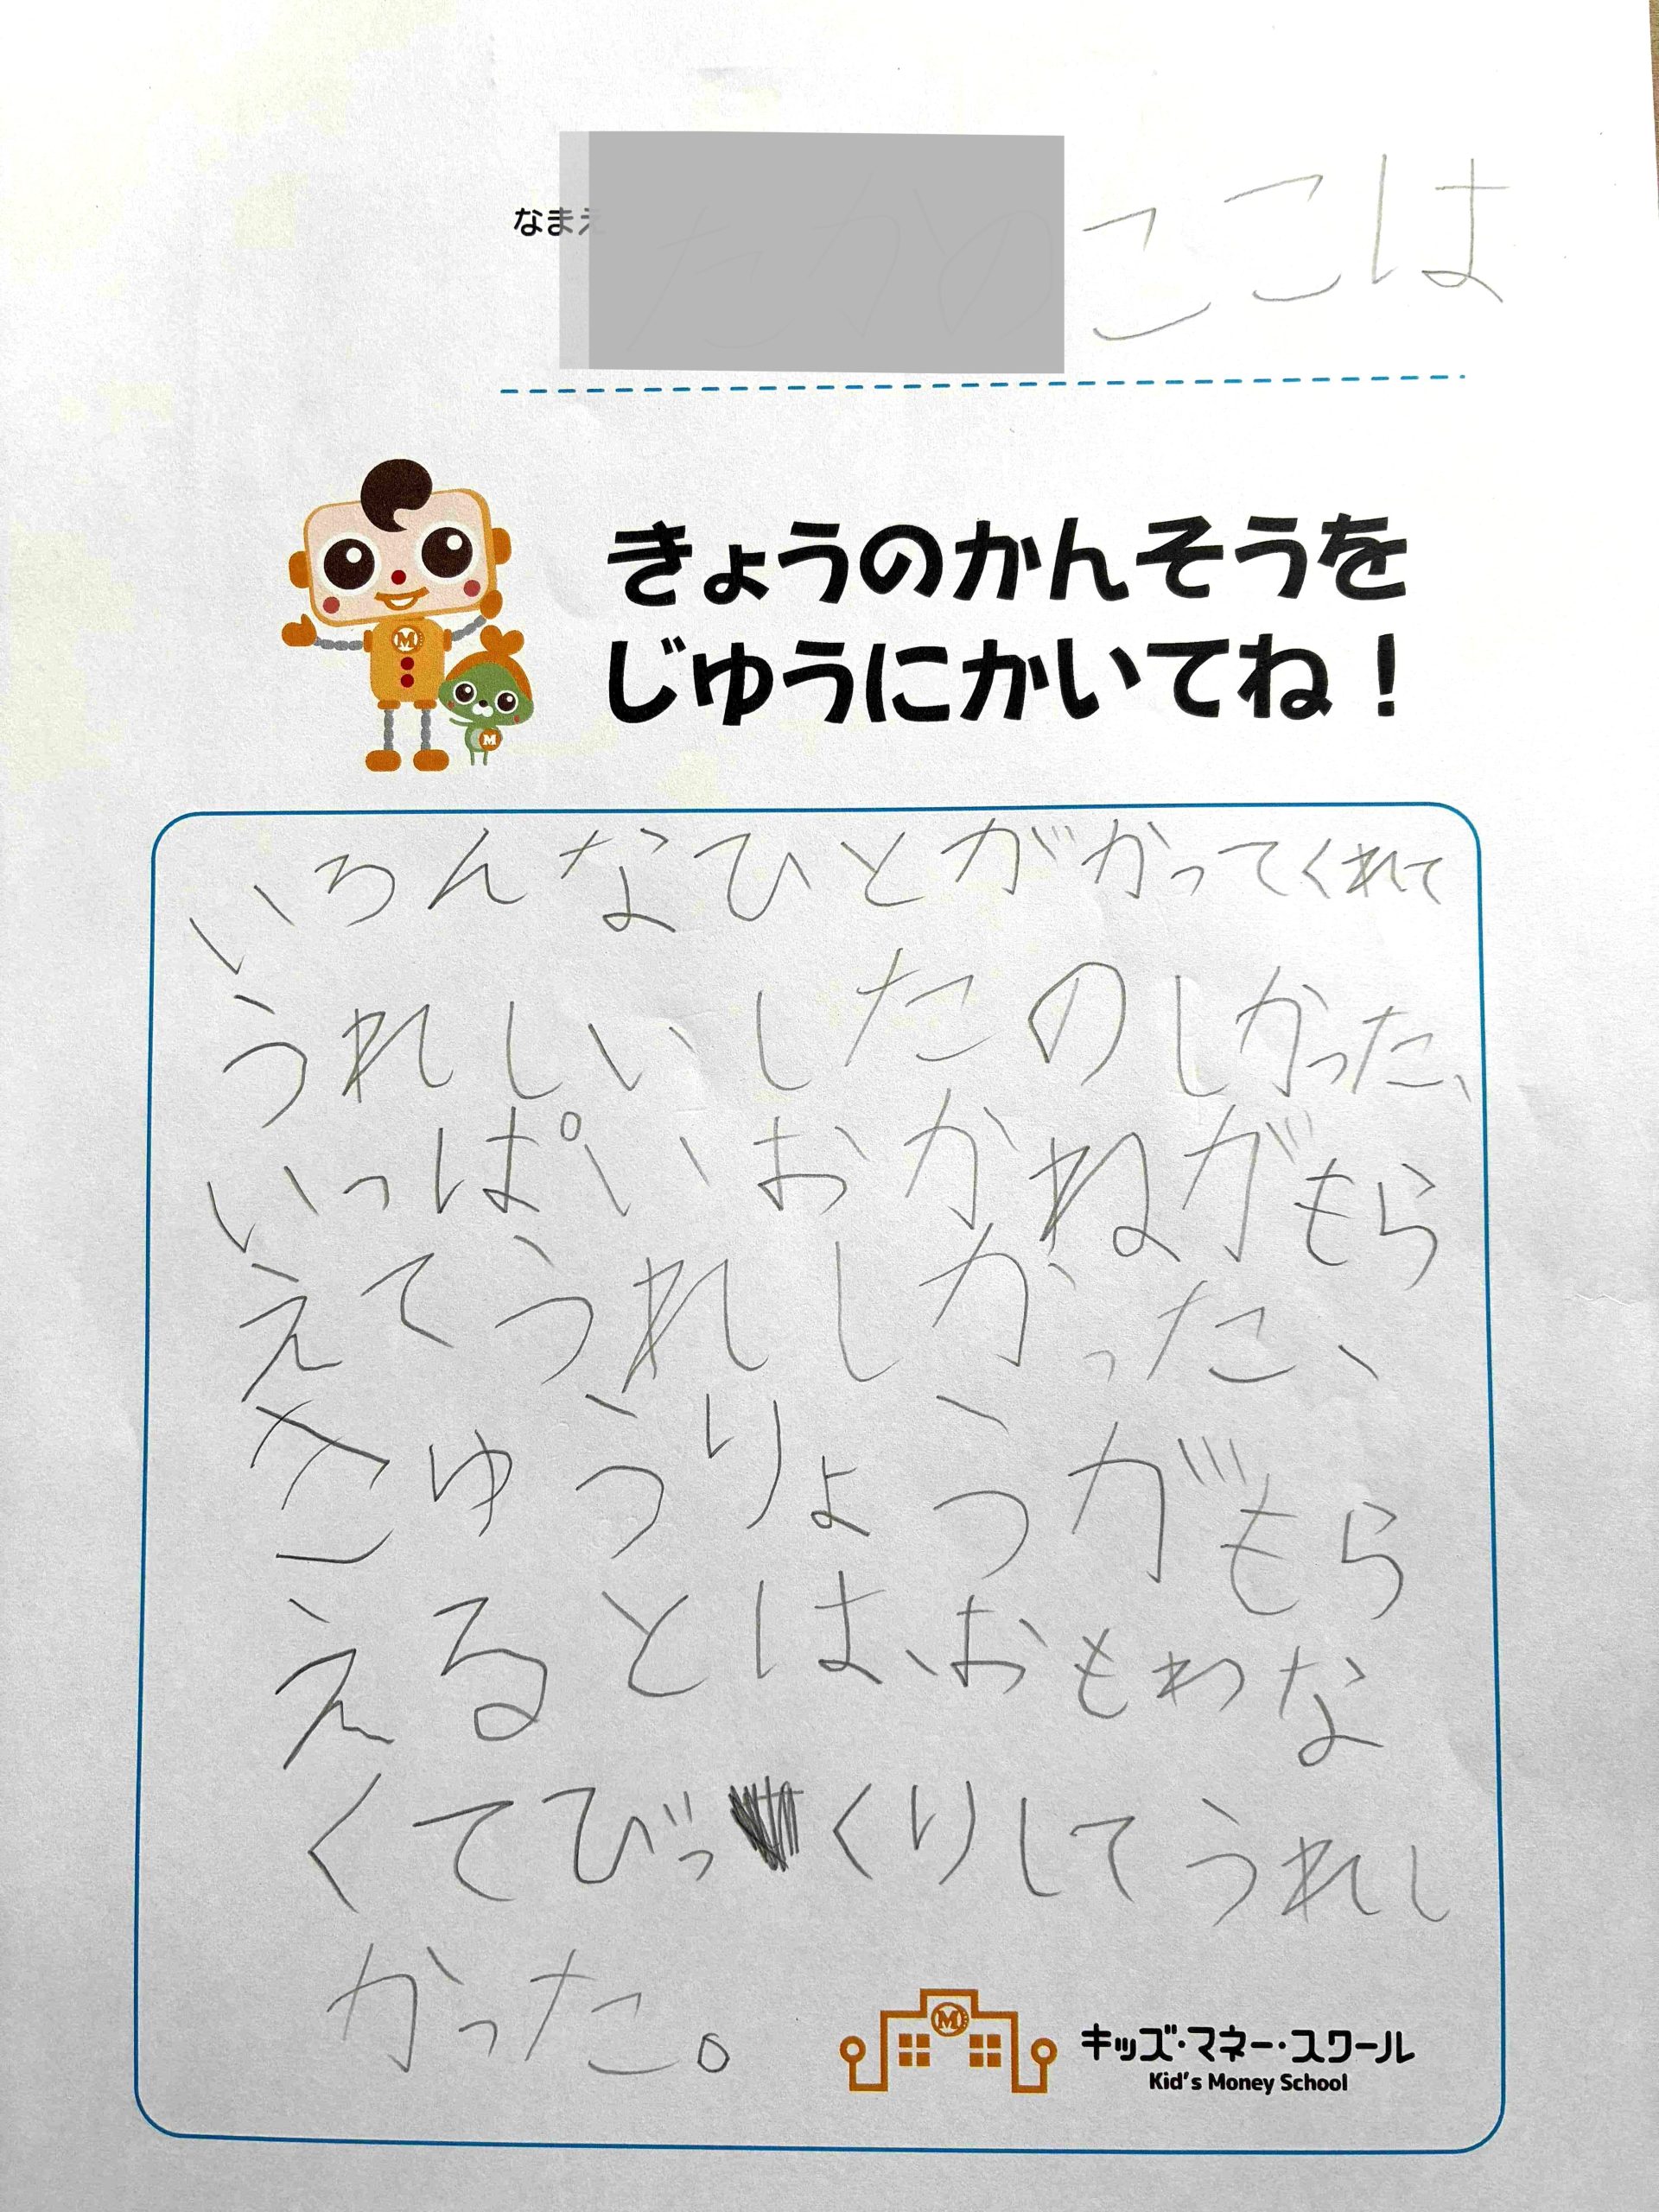 なまえ ここは
きょうのかんそうを
じゆうにかいてね!
いろんなひとがかってくれて
うれしいしたのしかった、
いっぱいおかねがもら
えてうれしかった、
きゅうりょうがもら
えるとは、おもわな
くてびっくりしてうれし
かった。
M
キッズ・マネー・スクール
Kid's Money School